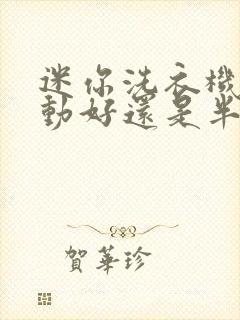 迷你洗衣機
動好還是半
賀華珍